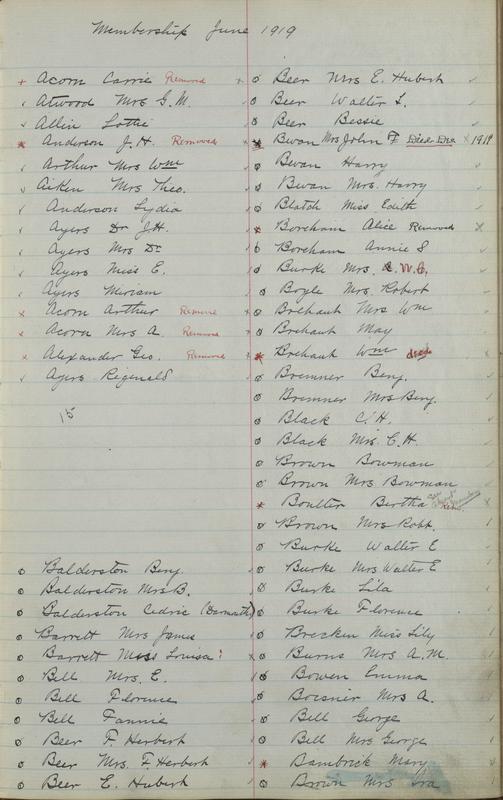 Membership June 1919
Acorn Carrie Removed
Atwood Mrs G. M.
Allin Lottie
Anderson J. H. Removed
Arthur Mrs Wm
Aiken Mrs Theo.
Anderson Lydia
Ayers Dr J. H.
Ayers Mrs Dr
Ayers Miss E.
Ayers Miriam
Acorn Arthur Remove
Acorn Mrs A. Remove
Alexander Geo. Remove
Ayers Reginald
15
Balderston Benj.
Balderston Mrs B.
Balderston Cedric
Barrett Mrs James
Barrett Miss Louisa
Bell Mrs. E.
Bell Florence
Bell Fannie
Beer F. Herbert
Beer Mrs. F. Herbert
Beer E. Hubert
Beer Mrs E. Hubert
Beer Walter L.
Beer Bessie
Bevan Mrs John F Died Dec 1919
Bevan Harry
Bevan Mrs. Harry
Blatch Miss Edith
Boreham Alice Removed
Boreham Annie S
Burke Mrs. W. E.
Boyle Mrs. Robert
Brehaut Mrs Wm
Brehaut May
Brehaut Wm died
Bremner Benj.
Bremner Mrs Benj.
Black C. H.
Black Mrs. C. H.
Brown Bowman
Brown Mrs Bowman
Boulter Bertha
Brown Mrs Robt.
Burke Walter E
Burke Mrs Walter E
Burke Lila
Burke Florence
Brecken Miss Lily
Burns Mrs A. M.
Bowen Emma
Boesner Mrs A.
Bell George
Bell Mrs George
Bambrick Mary
Brown Mrs Ira